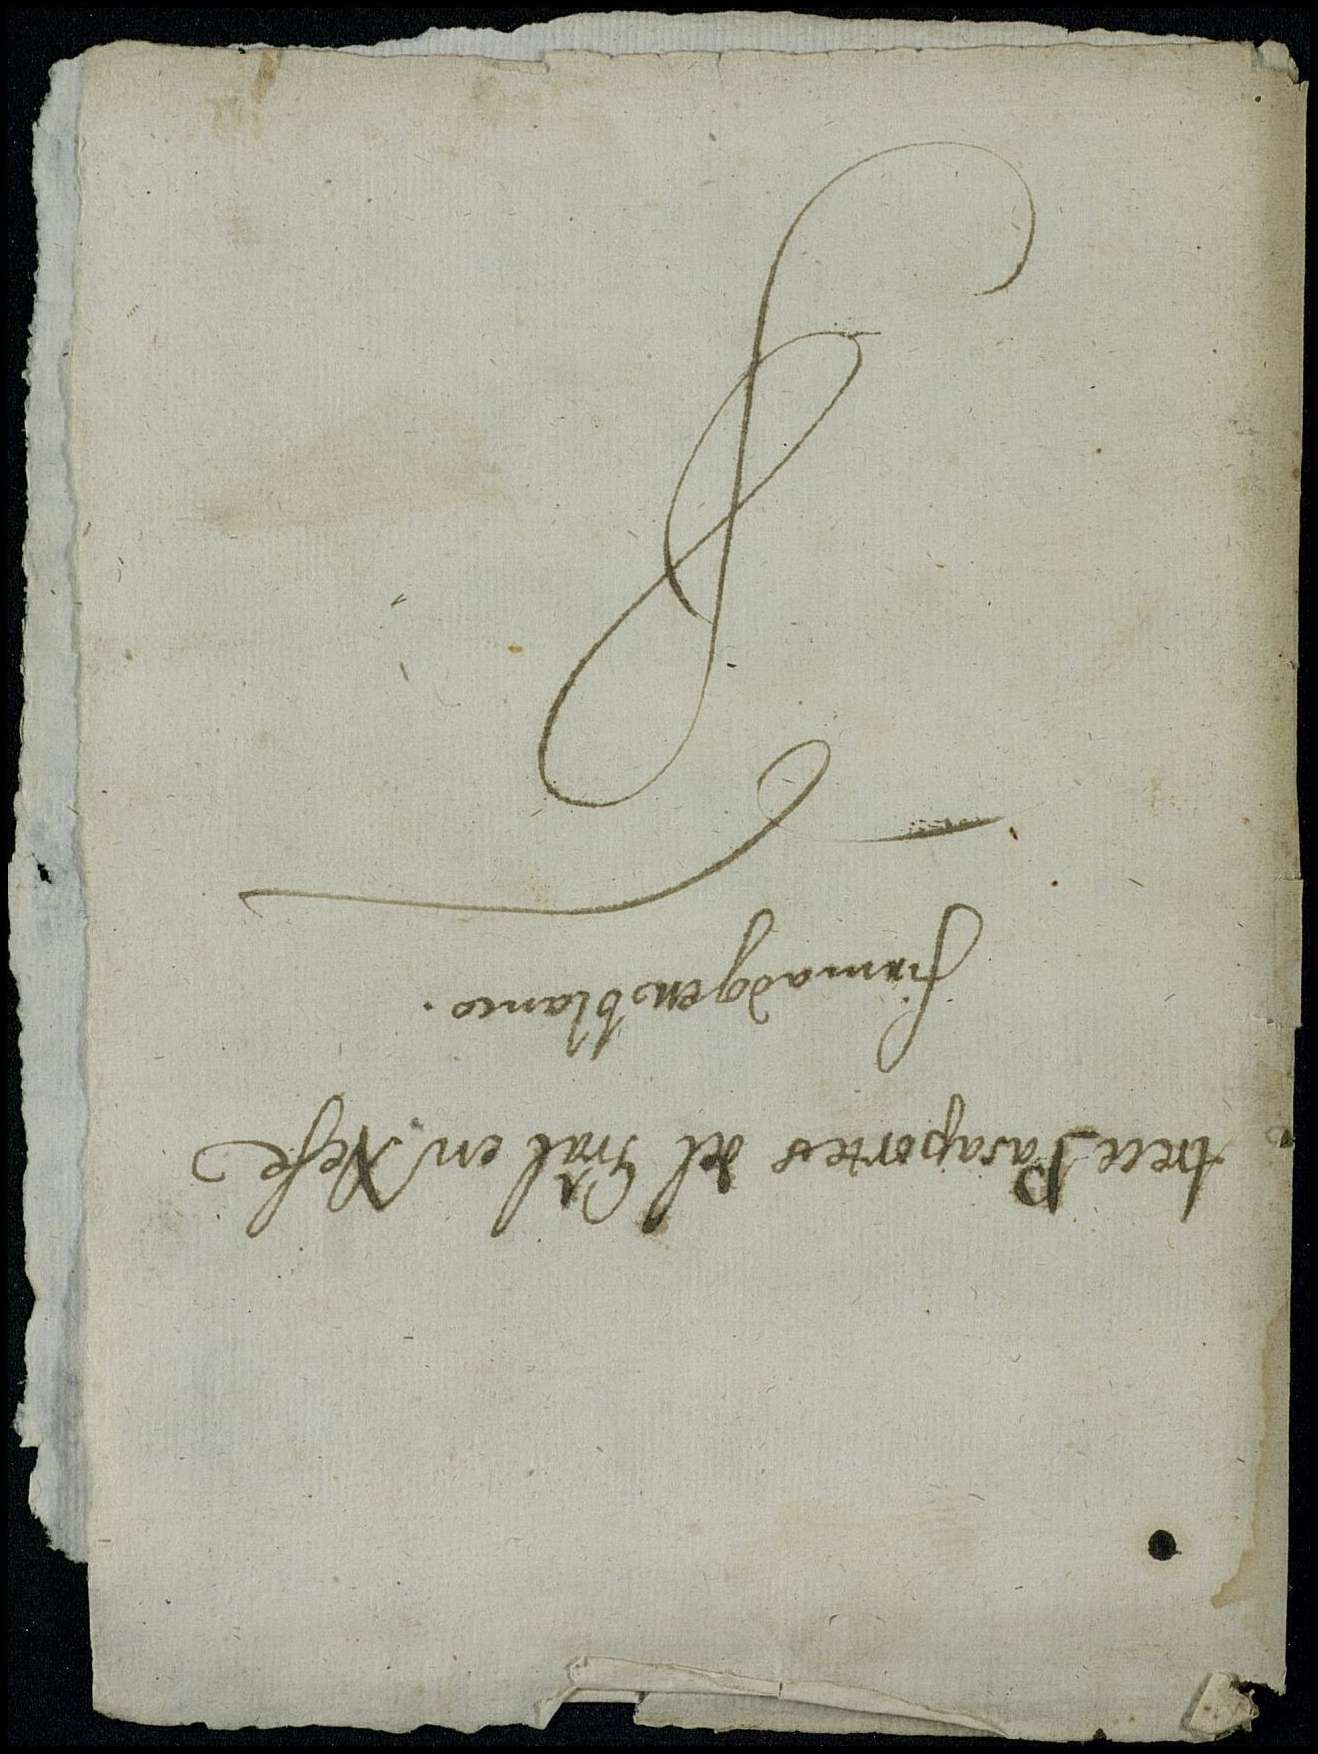 trece Pasaportes del Gral en Xefe
firmados en blanco.